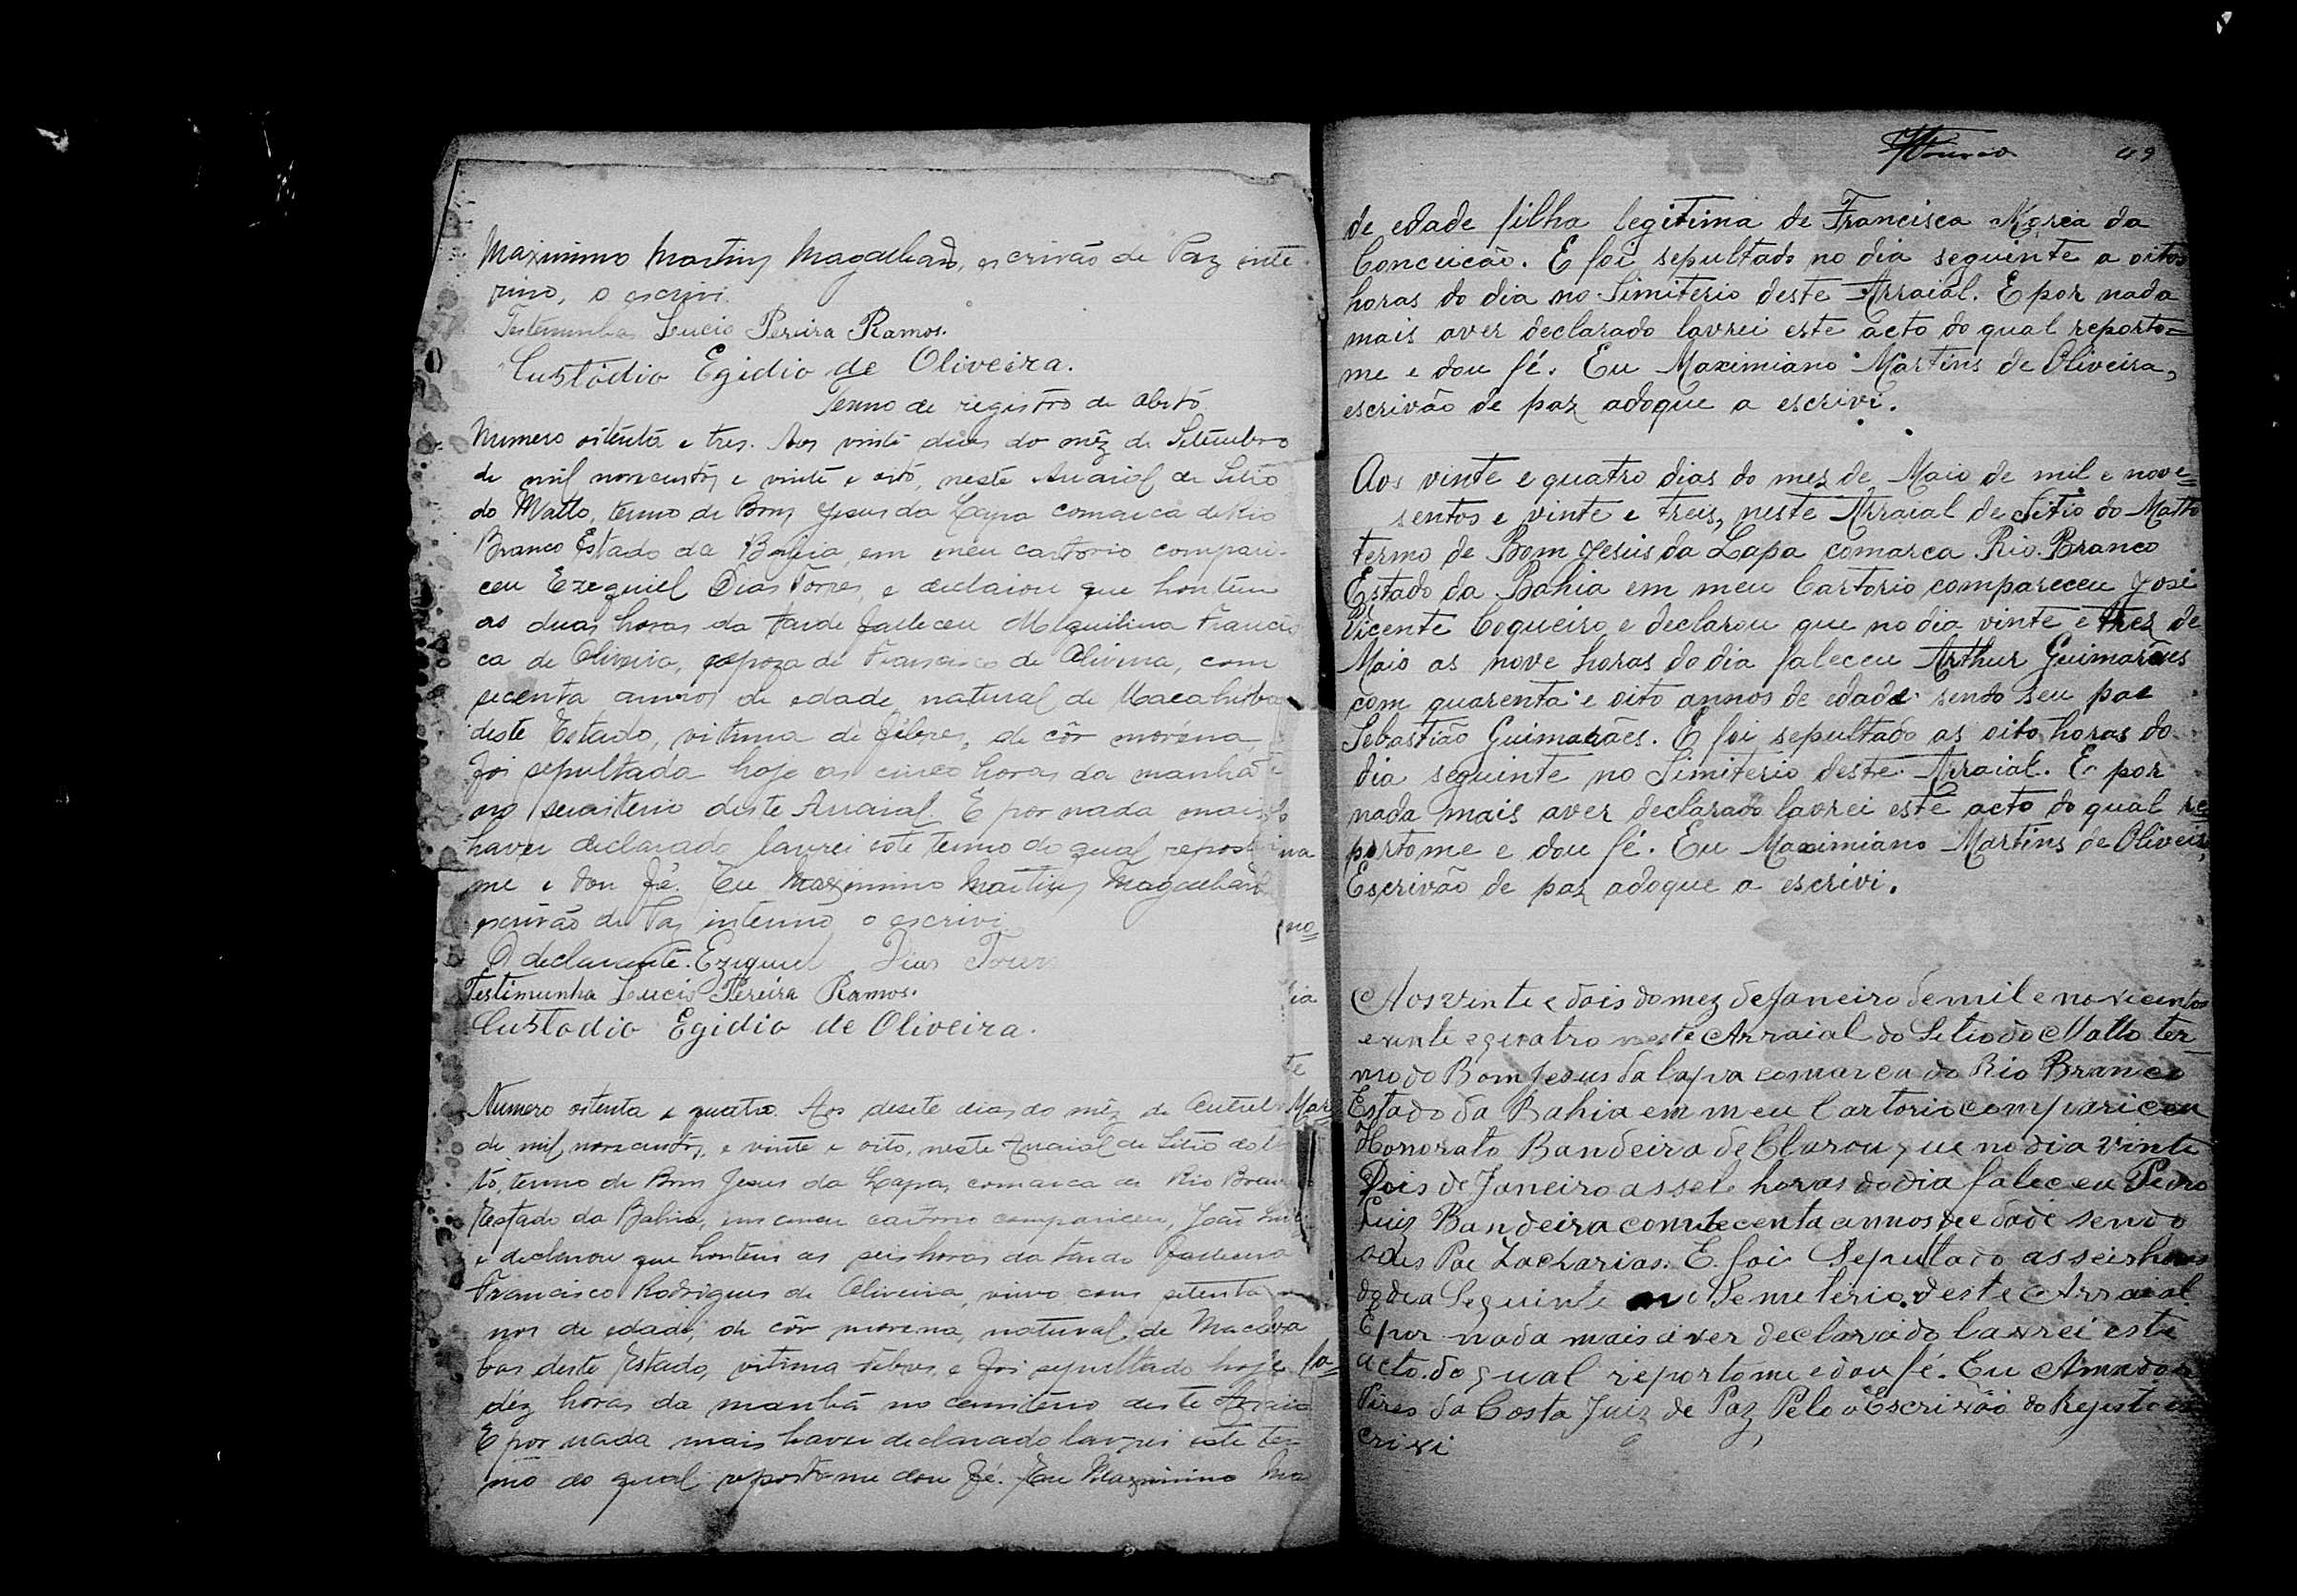 Maximino Martins Magalhães, escrivão de Paz inte-
rino, o escrivi.
Testemunha Lucio Pereira Ramos.
Custódio Egidio de Oliveira.
Termo de registro de obito
Numero oitenta e tres. Aos vinte dias do mêz de Setembro
de mil novecentos e vinte e oito, neste Arraial de Sitio
do Matto, termo de Bom Jesus da Lapa comarca de Rio
Branco Estado da Bahia, em meu cartorio compare-
ceu Ezequiel Dias Torres, e declarou que hontem
as duas horas da tarde falleceu Francis
ca de Oliveira, espoza de Francisco de Oliveira, com
secenta annos de edade natural de Macahuba
deste Estado, vitima de febres, de côr moréna,
foi sepultada hoje as cinco horas da manhã
no semiterio deste Arraial E por nada mais
haver declarado lavrei este termo do qual reporto
me e dou fé. Eu Maximino Martins Magalhães
escrivão de Paz interino o escrivi
O declarante. Ezequiel Dias Torres
Testimunha Lucio Pereira Ramos.
Custodio Egidio de Oliveira.
Numero oitenta e quatro. Aos desete dias do mêz de Outub
de mil novecentos, e vinte e oito, neste Arraial de Sitio do
to, termo de Bom Jesus da Lapa, comarca de Rio Bran
Estado da Bahia, em meu cartorio compareceu, João
e declarou que hontem as seis horas da tarde falleceu
Francisco Rodrigues de Oliveira, viuvo com setenta
nos de edade, de côr morena, natural de Macahu
bas deste Estado, vitima febres, e foi sepultado hoje
déz horas da manhã no cemiterio deste Arraia
E por nada mais haver declarado lavrei este ter
mo do qual reporto-me dou fé. Eu Maximino Ma
na
no=
ia
te
Mar
fa=
49
de edade filha legitima de Francisca Maria da
Conceicão. E foi sepultado no dia seguinte a oitos
horas do dia no Simiterio deste Arraial. E por nada
mais aver declarado lavrei este acto do qual reporto=
me e dou fé. Eu Maximiano Martins de Oliveira,
escrivão de paz adoque a escrivi.
Aos vinte e quatro dias do mez de Maio de mil e nove=
sentos e vinte e treis, neste Arraial de Sitio do Matto
termo de Bom Jesus da Lapa comarca Rio. Branco
Estado da Bahia em meu Cartorio compareceu José
Vicente Coqueiro e declarou que no dia vinte e trez de
Maio as nove horas do dia faleceu Arthur Guimarães
com quarenta e oito annos de edade sendo seu pae
Sebastião Guimarães. E foi sepultado as oito horas do
dia seguinte no Simiterio deste Arraial. E por
nada mais aver declarado lavrei este acto do qual re=
portome e dou fé. Eu Maximiano Martins de Oliveira,
Escrivão de paz adoque a escrivi.
Aos vinte e dois do mez de Janeiro de mil e novicentos
e vinte e quatro neste Arraial do Sitio do Matto ter-
mo do Bom Jesus da Lapa comarca do Rio Branco
Estado da Bahia em meu Cartorio compariceu
Honorato Bandeira deClarou que no dia vinte
Dois de Janeiro as sete horas do dia faleceu Pedro
Luiz Bandeira com secenta annos de edade sendo
Pae Zacharias. E foi Sepultado as seis horas
do dia Seguinte Semeterio deste Arraial
E por nada mais aver declarado lavrei este
acto. do qual reportome e dou fé. Eu Amador
Pires da Costa Juiz de Paz Pelo o Escrivão do Rejisto es
crivi